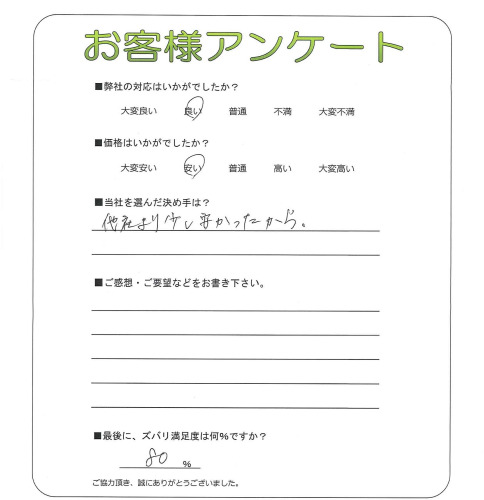 お客様アンケート
■弊社の対応はいかがでしたか？
大変良い 良い 普通 不満 大変不満
■価格はいかがでしたか？
大変安い 安い 普通 高い 大変高い
■当社を選んだ決め手は？
他社より少し安かったから。
■ご感想・ご要望などをお書き下さい。
■最後に、ズバリ満足度は何%ですか？
80 %
ご協力頂き、誠にありがとうございました。